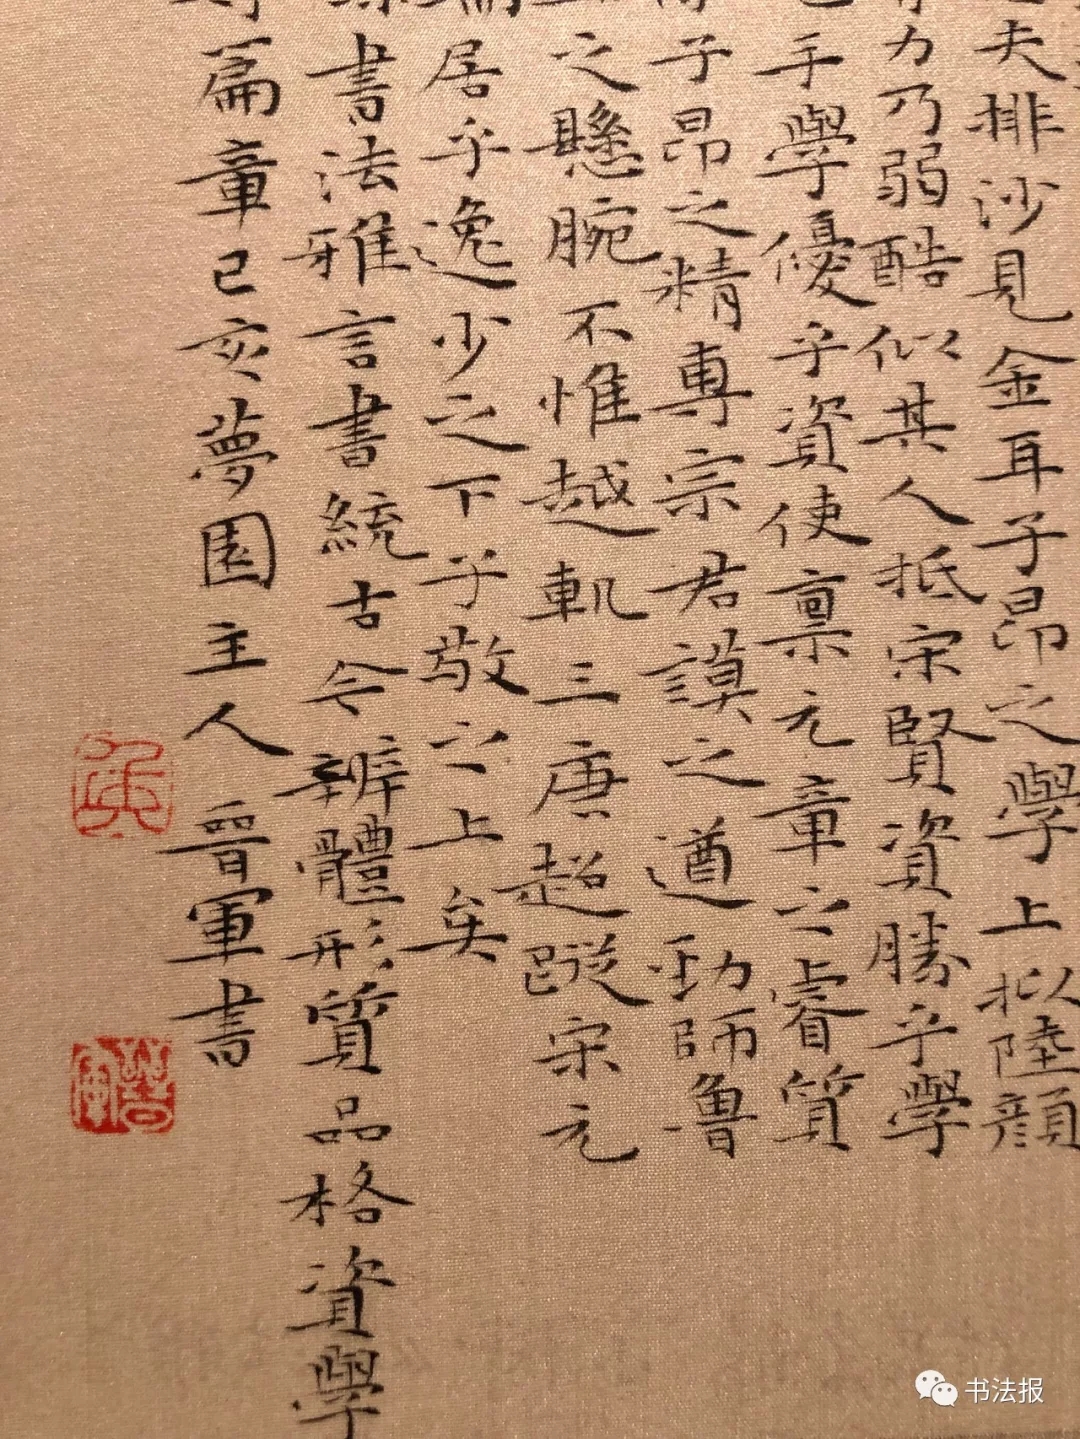 夫排沙見金耳子昂之學上拟陸顏
力乃弱酷似其人抵宋賢資勝乎學
手學優乎資使禀元章之睿質
子昂之精專宗君謨之遒劲師魯
之懸腕不惟越軌三唐超蹤宋元
居乎逸少之下子敬之上矣
書法雅言書統古今辨體形質品格資學
篇章己亥夢園主人晉軍書
晉軍
书法报